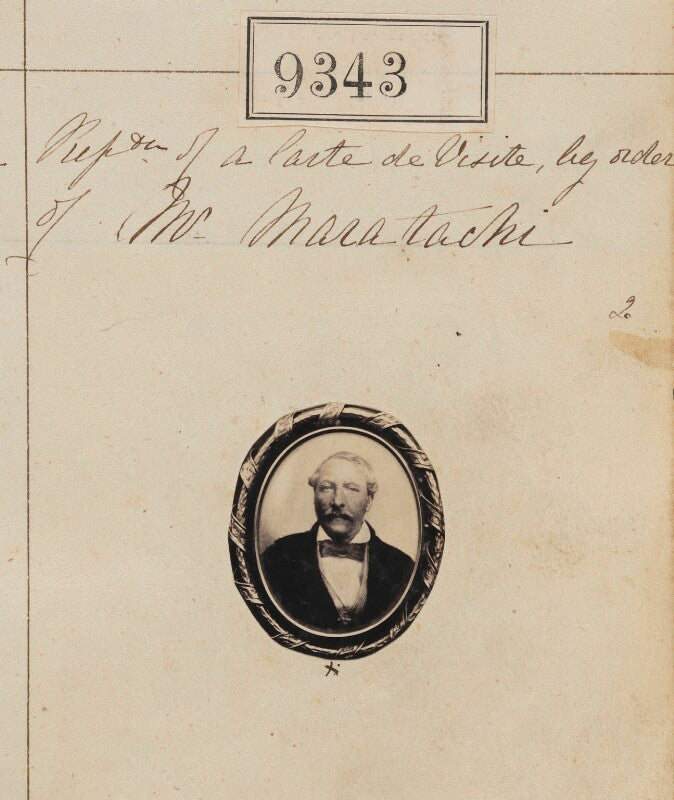 9343
Repdn of a Carte de Visite, by order
of Mr Maratachi
2
x